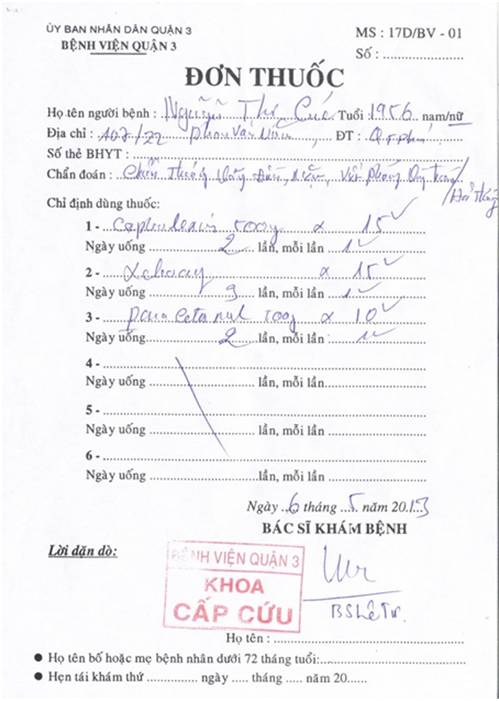 ỦY BAN NHÂN DÂN QUẬN 3
BỆNH VIỆN QUẬN 3
MS : 17D/BV - 01
Số : ........................
ĐƠN THUỐC
Họ tên người bệnh : Nguyễn Thị Cúc Tuổi 1956 nam/nữ
Địa chỉ : 107/22 Phan Văn ĐT :
Số thẻ BHYT :
Chẩn đoán : Chấn Thương
Chỉ định dùng thuốc:
1 - 500mg x 15
Ngày uống 2 lần, mỗi lần 1
2 - x 15
Ngày uống 3 lần, mỗi lần 1
3 - paracetamol 500mg x 10
Ngày uống 2 lần, mỗi lần 1
4 -
Ngày uống lần, mỗi lần
5 -
Ngày uống lần, mỗi lần
6 -
Ngày uống lần, mỗi lần
Ngày 6 tháng 5 năm 2013
BÁC SĨ KHÁM BỆNH
Lời dặn dò:
BỆNH VIỆN QUẬN 3
KHOA
CẤP CỨU
Họ tên :
● Họ tên bố hoặc mẹ bệnh nhân dưới 72 tháng tuổi:
● Hẹn tái khám thứ ngày tháng năm 20